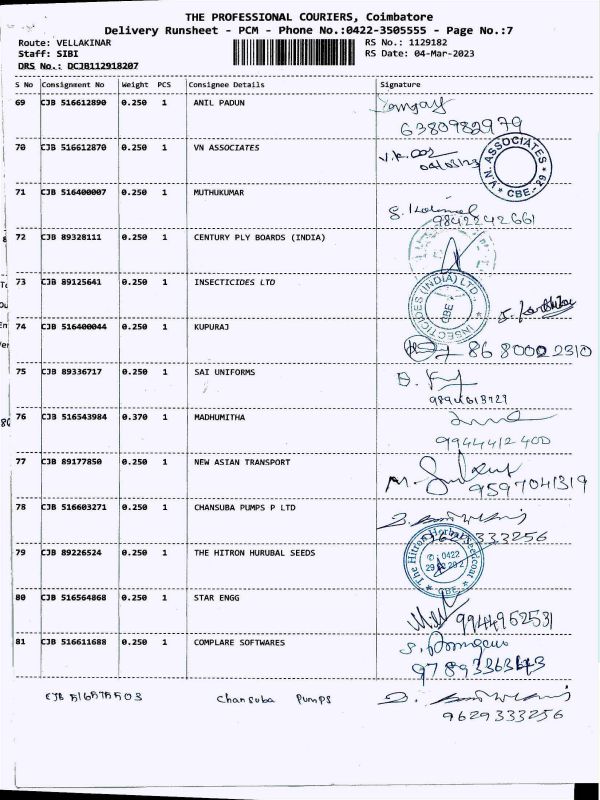 THE PROFESSIONAL COURIERS, Coimbatore
Delivery Runsheet - PCM - Phone No.:0422-3505555 - Page No.:7
Route: VELLAKINAR RS No.: 1129182
Staff: SIBI RS Date: 04-Mar-2023
DRS No.: DCJB112918207
S No Consignment No Weight PCS Consignee Details Signature
69 CJB 516612890 0.250 1 ANIL PADUN
6380982979
70 CJB 516612870 0.250 1 VN ASSOCIATES
V.N. ASSOCIATES * CBE.- 29 *
71 CJB 516400007 0.250 1 MUTHUKUMAR
9842242661
72 CJB 89328111 0.250 1 CENTURY PLY BOARDS (INDIA)
73 CJB 89125641 0.250 1 INSECTICIDES LTD
INSECTICIDES (INDIA) LTD., * CBE *
74 CJB 516400044 0.250 1 KUPURAJ
86 8000 2310
75 CJB 89336717 0.250 1 SAI UNIFORMS
76 CJB 516543984 0.370 1 MADHUMITHA
9944412400
77 CJB 89177850 0.250 1 NEW ASIAN TRANSPORT
9597041319
78 CJB 516603271 0.250 1 CHANSUBA PUMPS P LTD
333256
79 CJB 89226524 0.250 1 THE HITRON HURUBAL SEEDS
* The Hitron Herbal Seedcoat * CBE
0422
80 CJB 516564868 0.250 1 STAR ENGG
9944952531
81 CJB 516611688 0.250 1 COMPLARE SOFTWARES
CJB 516575503 Chansuba Pumps
9629333256